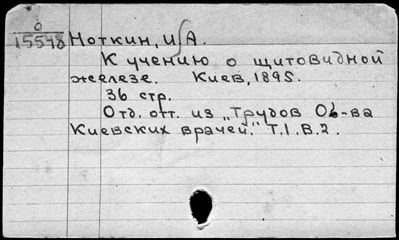 О
15548 Ноткин, И. А.
К учению о щитовидной
железе. Киев, 1895.
36 стр.
Отд. отт. из „Трудов Об-ва
Киевских врачей." Т.I.В.2.